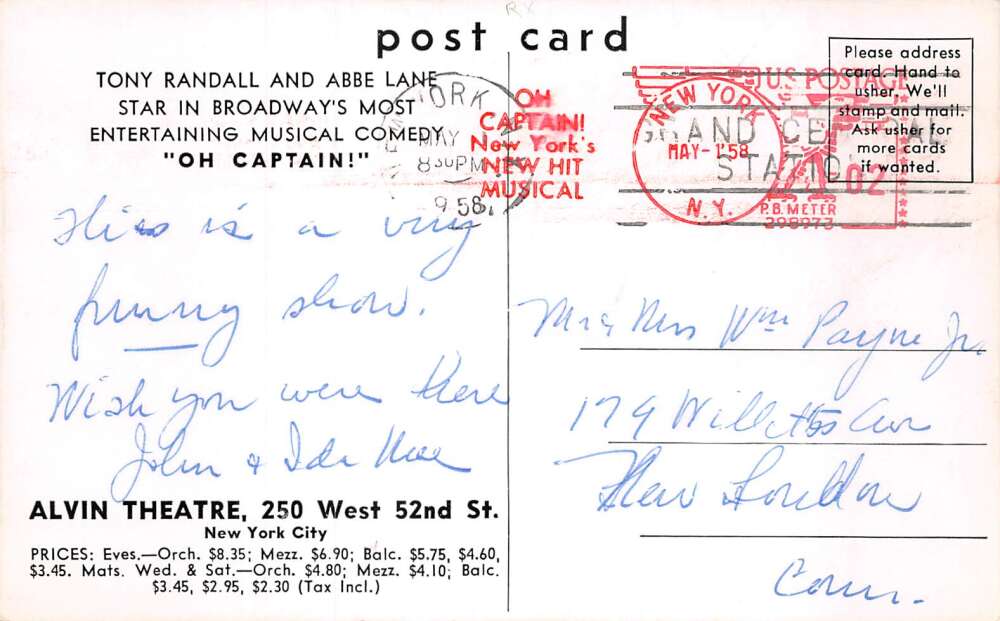 post card
TONY RANDALL AND ABBE LANE
STAR IN BROADWAY'S MOST
ENTERTAINING MUSICAL COMEDY
"OH CAPTAIN!"
YORK
MAY
8 30 PM
9 58
OH
CAPTAIN!
New York's
NEW HIT
MUSICAL
NEW YORK
MAY-1'58
N.Y.
GRAND CENTRAL
STATION
U.S. POSTAGE
02
P.B. METER
298973
Please address
card. Hand to
usher. We'll
stamp and mail.
Ask usher for
more cards
if wanted.
This is a very
funny show.
Wish you were here
John & Ida
ALVIN THEATRE, 250 West 52nd St.
New York City
PRICES: Eves.—Orch. $8.35; Mezz. $6.90; Balc. $5.75, $4.60,
$3.45. Mats. Wed. & Sat.—Orch. $4.80; Mezz. $4.10; Balc.
$3.45, $2.95, $2.30 (Tax Incl.)
Mr & Mrs Wm Payne Jr.
179 Willetts Ave
New London
Conn.